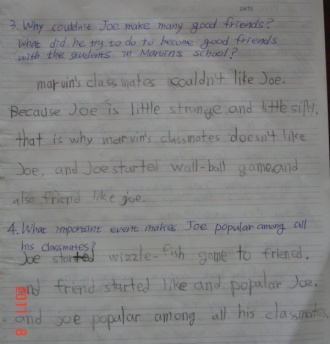 DATE
3. Why couldn't Joe make many good friends?
What did he try to do to become good friends
with the students in Marvin's school?
marvin's classmates couldn't like Joe.
Because Joe is little strange and little silly.
that is why marvin's classmates doesn't like
Joe, and Joe started wall-ball game and
also friend like joe.
4. What important event makes Joe popular among all
his classmates?
Joe started wizzle-fish game to friend.
and friend started like and popular Joe.
and joe popular among all his classmates.